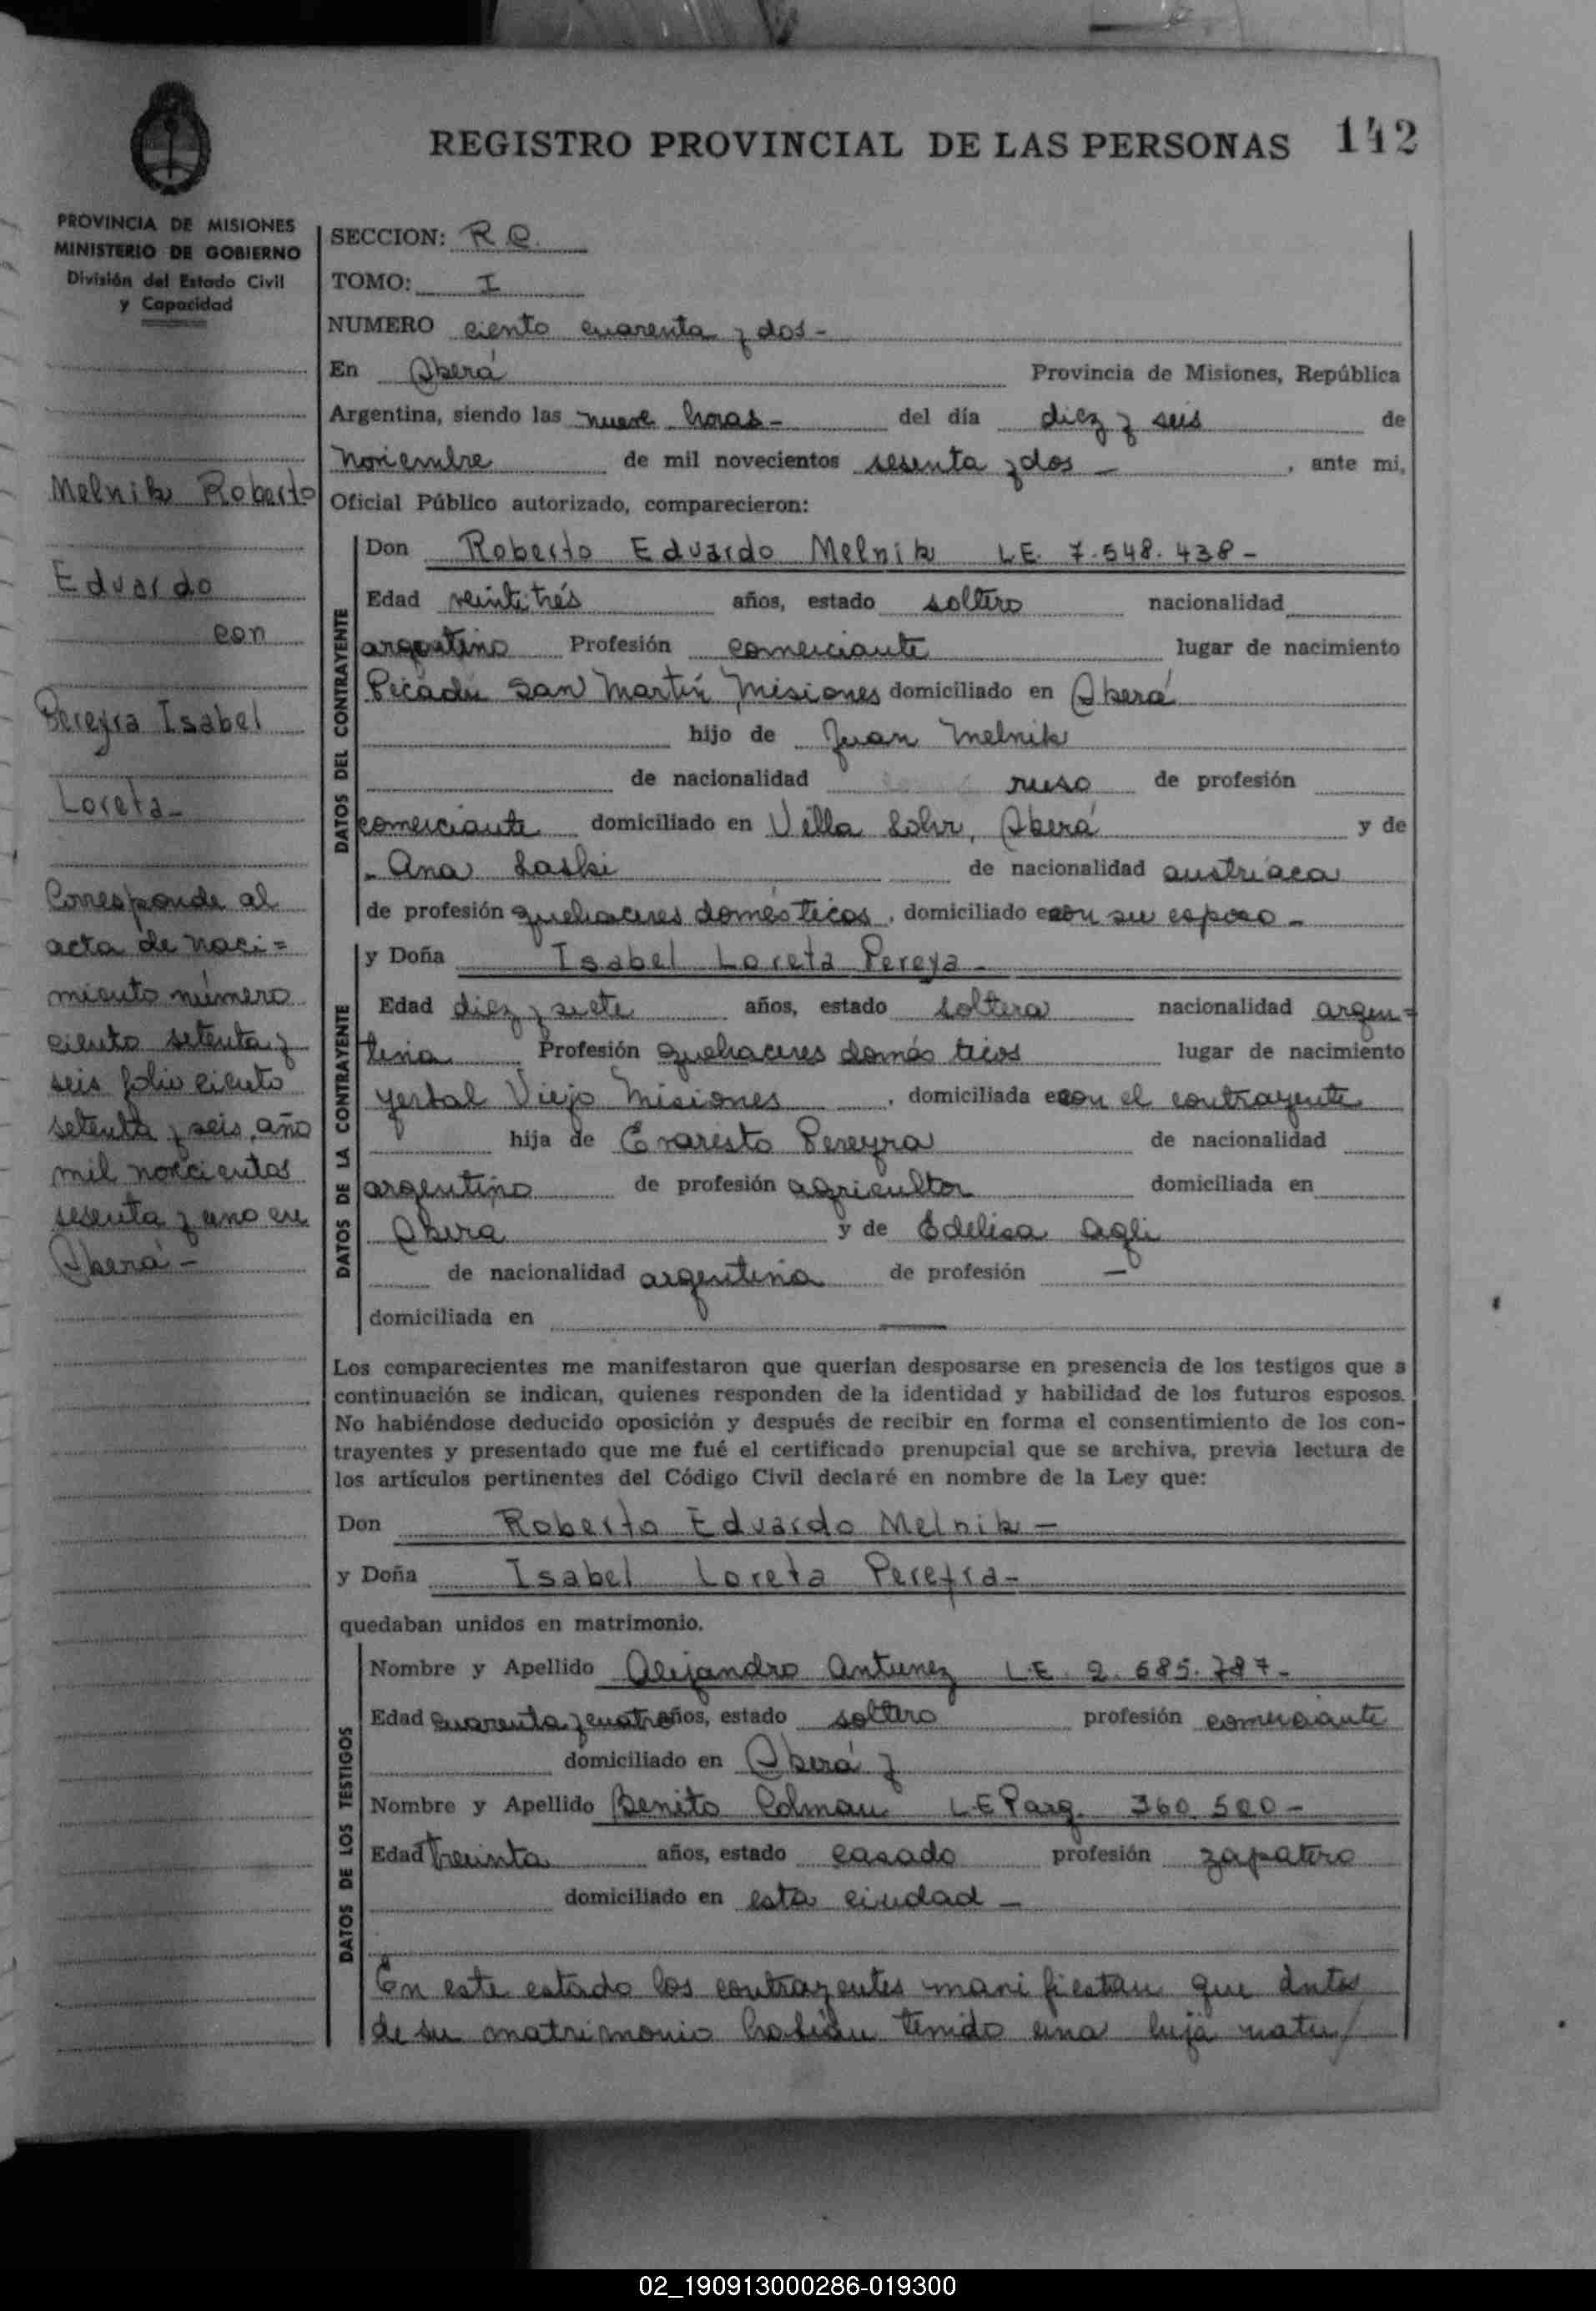 REGISTRO PROVINCIAL DE LAS PERSONAS 142
PROVINCIA DE MISIONES
MINISTERIO DE GOBIERNO
División del Estado Civil
y Capacidad
Melnik Roberto
Eduardo
con
Pereyra Isabel
Loreta-
Corresponde al
acta de naci=
miento número
ciento setenta y
seis folio ciento
setenta y seis, año
mil novecientos
sesenta y uno en
Oberá-
SECCION: R.C.
TOMO: I
NUMERO ciento cuarenta y dos-
En Oberá Provincia de Misiones, República
Argentina, siendo las nueve horas- del día diez y seis de
noviembre de mil novecientos sesenta y dos -, ante mi,
Oficial Público autorizado, comparecieron:
DATOS DEL CONTRAYENTE
Don Roberto Eduardo Melnik L.E. 7.548.438-
Edad veintitrés años, estado soltero nacionalidad
argentino Profesión comerciante lugar de nacimiento
Picada San Martín Misiones domiciliado en Oberá
hijo de Juan Melnik
de nacionalidad ruso de profesión
comerciante domiciliado en Villa , Oberá y de
- Ana Laski de nacionalidad austríaca
de profesión quehaceres domésticos, domiciliado con su esposo-
DATOS DE LA CONTRAYENTE
y Doña Isabel Loreta Pereya-
Edad diez y siete años, estado soltera nacionalidad argen=
tina Profesión quehaceres domésticos lugar de nacimiento
Yerbal Viejo Misiones, domiciliada con el contrayente
hija de Evaristo Pereyra de nacionalidad
argentino de profesión agricultor domiciliada en
Obera y de Edelisa Agli
de nacionalidad argentina de profesión -
domiciliada en —
Los comparecientes me manifestaron que querían desposarse en presencia de los testigos que a
continuación se indican, quienes responden de la identidad y habilidad de los futuros esposos.
No habiéndose deducido oposición y después de recibir en forma el consentimiento de los con-
trayentes y presentado que me fué el certificado prenupcial que se archiva, previa lectura de
los artículos pertinentes del Código Civil declaré en nombre de la Ley que:
Don Roberto Eduardo Melnik-
y Doña Isabel Loreta Pereyra-
quedaban unidos en matrimonio.
DATOS DE LOS TESTIGOS
Nombre y Apellido Alejandro Antunez L.E. 2.685.787-
Edad cuarenta y cuatro años, estado soltero profesión comerciante
domiciliado en Oberá y
Nombre y Apellido Benito Colman L.E Parg. 360.500-
Edad treinta años, estado casado profesión zapatero
domiciliado en esta ciudad -
En este estado los contrayentes manifiestan que antes
de su matrimonio habían tenido una hija natu/
02_190913000286-019300